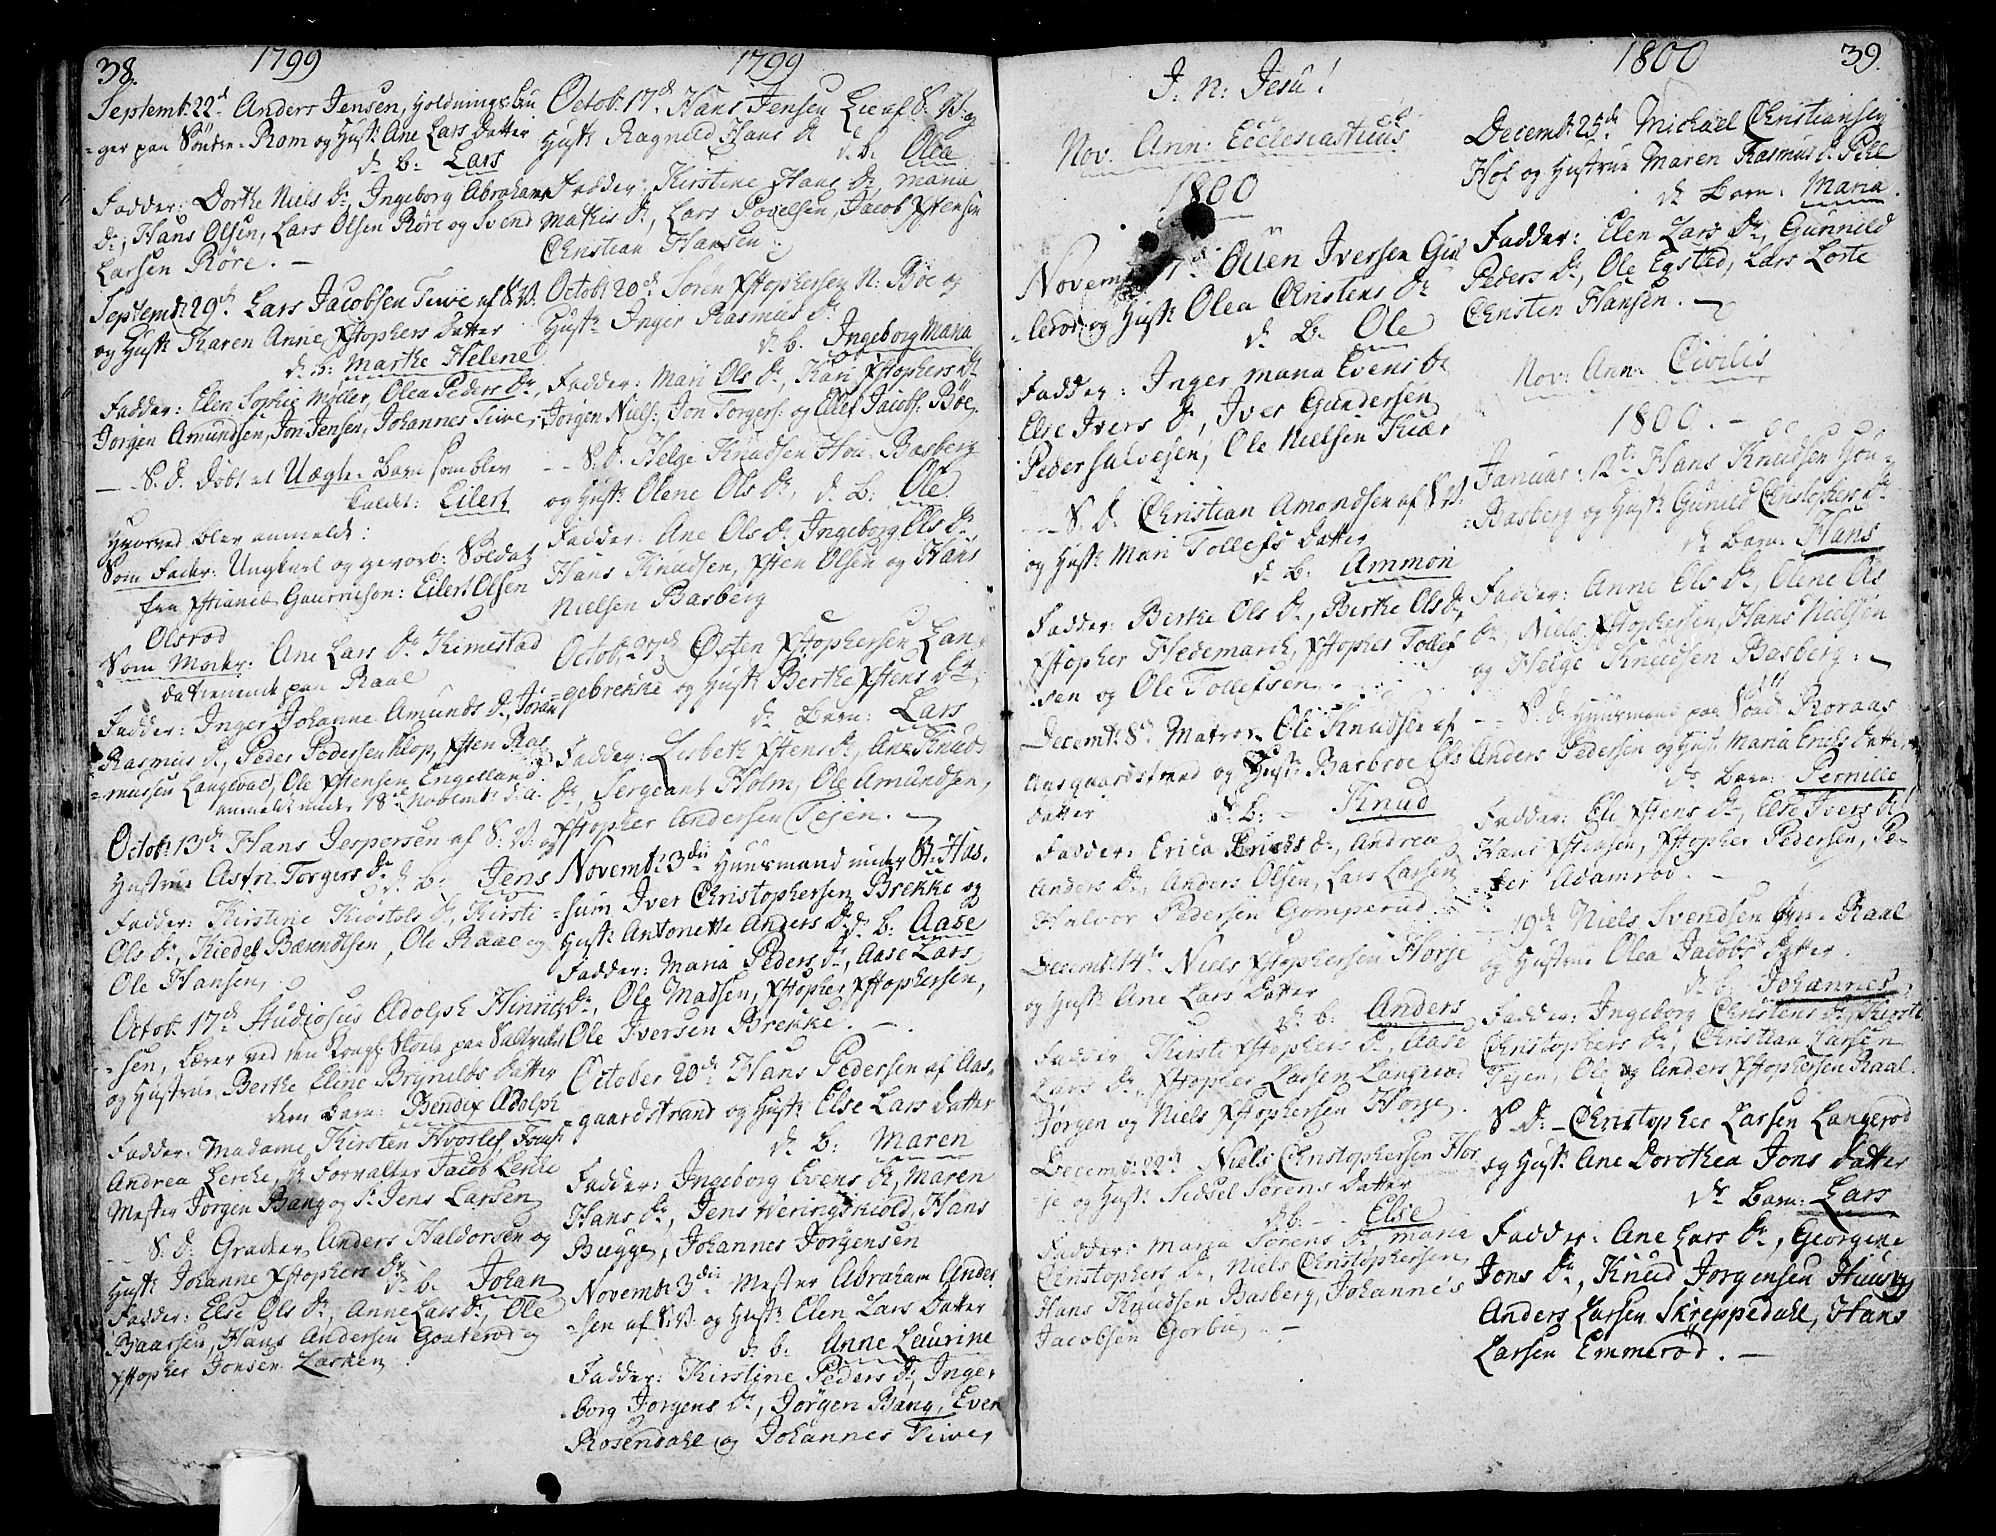 38.
1799
Septemb: 22de Anders Jensen, Holdningsbru
-ger paa Söndre-Rom og Hust: Ane Lars Datter
d: B: Lars
Fadder: Dorthe Niels Dr, Ingeborg Abrahams
Dr, Hans Olsen, Lars Olsen Röre og Svend
Larsen Röre. —
Septemb: 29de Lars Jacobsen Teive af S.V.
og Hust: Karen Anne Xstophers Datter
d: B: Marthe Helene
Fadder: Elen Sophie Möller, Olea Peders Dr,
Jörgen Amundsen, Jon Jensen, Johannes Teive
— S. D. döbt et Uægte Barn som blev
kaldt: Eilert
Hvorved blev anmeldt:
Som Fader: Ungkarl og gevorb: Soldat
fra Xstianiæ Gaurnieson: Eilert Olsen
Olsröd
Som Moder: Ane Lars Dr Kimestad
da tienende paa Raal
Fadder: Inger Johanne Amunds Dr, Jöran
Rasmus Dr, Peder Pedersen Klop, Xsten Ras
-mussen Langevad, Ole Xstensen Engelland
anmeldt under 18de Novembr d: A:
Octob: 13de Hans Jespersen af S: V: og
Hustrue Astri Torgers Dr
d: B: Jens
Fadder: Kirstine Kiöstols Dr, Kirsti
Ols Dr, Kiedel Bærendtsen, Ole Raal og
Ole Hansen,
Octob: 17de Studiosus Adolph Hinrich
-sen, Lærer ved den Kongl: Skole paa Saltværket
og Hustrue Berthe Eline Brynilds Datter
dem Barn: Bendix Adolph
Fadder: Madame Kirsten Hvoslef, Fru
Andrea Lerche, Hr Forvalter Jacob Lerche
Mester Jörgen Bang og Sr Jens Larsen
— S. D. Gracker Anders Haldorsen og
Hust: Johanne Xstophers Dr
d: B: Johan
Fadder: Else Ols Dr, Anne Lars Dr, Ole
Baarsen, Hans Andersen Goateröd og
Xstopher Jonsen Larken
1799
Octob: 17de Hans Jensen Lie af S: V: og
Hust: Ragnild Hans Dr
d. b. Olea
Fadder: Kirstine Hans Dr, Maria
Mathis Dr, Lars Povelsen, Jacob Xstensen
Christian Hansen.
Octob: 20de Sören Xstophersen N: Böe og
Hust: Inger Rasmus Dr
d. b. Ingeborg Maria
Fadder: Mari Ols Dr, Kari Xstophers Dr
Jörgen Niels: Jon Torgers: og Ellef Jacobs: Böe
— S: D. Helge Knudsen Hou-Basberg
og Hust: Olene Ols Dr, d: B: Ole
Fadder: Ane Ols Dr Ingeborg Ols Dr
Hans Knudsen, Xsten Olsen og Hans
Nielsen Basberg
Octob: 27de Østen Xstophersen Lan-
-gebrekke og Hust: Berthe Xstens Dr
dr Barn: Lars
Fadder: Lisbeth Xstens Dr, Ane Knuds
Dr, Sergeant Holm, Ole Amundsen,
Xstopher Andersen Tejen. —
Novemb: 3die Huusmand under B: Has-
-sum Iver Christophersen Brekke og
Hust: Antonette Anders Dr d: B: Aase
Fadder: Maria Peders Dr, Aase Lars
Dr, Ole Madsen, Xstopher Xstophersen,
Ole Iversen Brekke. —
October 20de Hans Pedersen af Aas-
-gaardstrand og Hust: Else Lars Datter
d: B: Maren
Fadder: Ingeborg Evens Dr, Maren
Hans Dr, Jens Weringskiold, Hans
Bugge, Johannes Jörgensen
Novemb: 3die Mester Abraham Ander
-sen af S: V: og Hust: Elen Lars Datter
d: b: Anne Laurine
Fadder: Kirstine Peders Dr, Inge-
-borg Jörgens Dr, Jörgen Bang, Even
Rosendahl og Johannes Teive,
J: N: Jesu!
Nov. Ann: Ecclesiasticus
1800
Novemb 1te Ouen Iversen Gul
-leröd og Hust: Olea Christens Dr
d: B: Ole
Fadder: Inger Maria Evens Dr
Else Ivers Dr, Iver Gundersen
Peder Salvesen, Ole Nielsen Kiær
— S. D. Christian Amondsen af S: V.
og Hust: Mari Tollefs Datter
d: B: Ammon
Fadder: Berthe Ols Dr, Berthe Ols Dr,
Xstopher Hedemarck, Xstopher Tollef
-sen og Ole Tollefsen.
Decemb: 8de Matros Ole Knudsen af
Aasgaardstrand og Hust: Barbroe Ols
Datter d: B: — Knud
Fadder: Erica Dr, Andrea
Anders Dr, Anders Olsen, Lars Larsen
Halvor Pedersen Gomperud
Decemb: 14de Niels Xstophersen Horje
og Hust: Ane Lars Datter
d: b: Anders
Fadder: Kirsti Xstophers Dr, Aase
Lars Dr, Xstopher Larsen Langeröd
Jörgen og Niels Xstophersen Horje.
Decemb: 22de Niels Christophersen Hor
-je og Hust: Sidsel Sörens Datter
d: b: — Else
Fadder: Maria Sörens Dr Maria
Christophers Dr, Niels Christophersen,
Hans Knudsen Basberg, Johannes
Jacobsen Gorbu, —
1800
39.
Decemb: 25de Michael Christiansen
Hof og Hustrue Maren Rasmus Dr
dr Barn: Maria
Fadder: Elen Lars Dr, Gunnild
Peders Dr, Ole Egsted, Lars Lorte
Christen Hansen. —
Nov: Ann: Civilis
1800. —
Januar: 12te Hans Knudsen Hou-
-Basberg og Hust: Gunild Christophers Dr
dr Barn: Hans
Fadder: Anne Ols Dr, Olene Ols
Dr, Niels Xstophersen, Hans Nielsen
og Helge Knudsen Basberg. —
— S. D. Huusmand paa Sond: Roraas
Anders Pedersen og Hust: Maria Erichs Datter
dr Barn: Pernille
Fadder: Eli Xstens Dr, Else Ivers Dr
Hans Xstensen, Xstopher Pedersen, Pe-
-ter Adamröd. —
— 19de Niels Svendsen Raal
og Hustrue Olea Jacobs Datter.
d: b: Johannes
Fadder: Ingeborg Christens Dr, Kirsti
Christophers Dr, Christian Larsen
Tejen, Ole og Anders Xstophersen Raal.
S. D. — Christopher Larsen Langeröd
og Hust: Ane Dorothea Jons Datter
dr Barn: Lars
Fadder: Ane Lars Dr, Georgine
Jons Dr, Knud Jorgensen Huusby
Anders Larsen Skreppedahl, Hans
Larsen Emmeröd. —